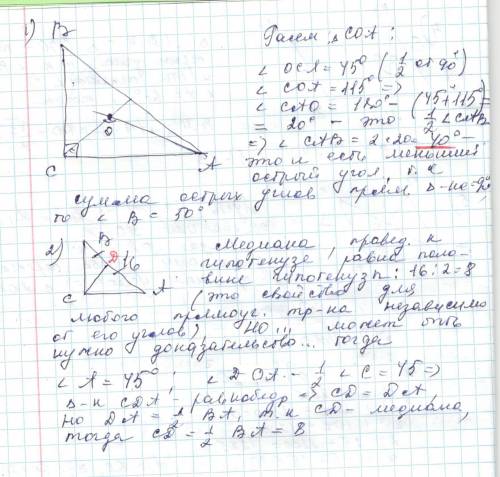 1) B
Рассм. △ COA:
∠ OCA = 45° (1/2 от 90°)
∠ COA = 115° =>
∠ CAO = 180° - (45+115°) =
= 20° - это (1/2 ∠ CAB
=> ∠ CAB = 2·20 = 40° -
O
это и есть меньший
C A
острый угол, т.к
сумма острых углов прям. △-ка = 90°,
то ∠ B = 50°
2) B
D 16
C A
Медиана, провед. к
гипотенузе, равна поло-
вине гипотенузы: 16:2=8
(это свойство для
любого прямоуг. тр-на независимо
от его углов), но... может быть
нужно доказательство... тогда
∠ A = 45°; ∠ DCA - 1/2 ∠ C = 45 =>
△-к CDA - равнобедр => CD = DA,
но DA = 1/2 BA, т.к CD - медиана,
тогда CD = 1/2 BA = 8